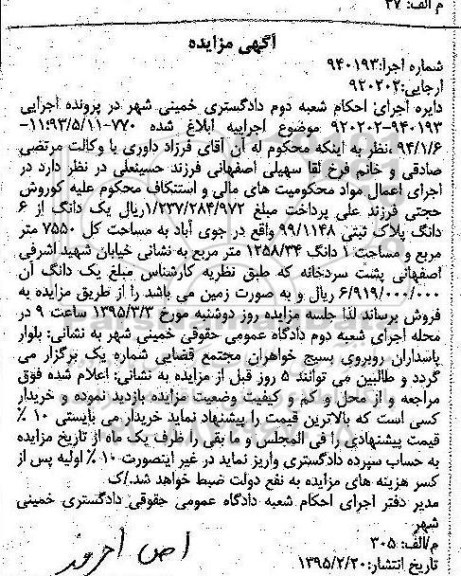 م الف: ۲۷
آگهی مزایده
شماره اجرا:۹۴۰۱۹۳
ارجایی:۹۲۰۲۰۲
دایره اجرای احکام شعبه دوم دادگستری خمینی شهر در پرونده اجرایی
۹۴۰۱۹۳-۹۲۰۲۰۲ موضوع اجراییه ابلاغ شده ۷۷۰-۱۱:۹۳/۵/۱۱-
۹۴/۱/۶ ،نظر به اینکه محکوم له آن آقای فرزاد داوری با وکالت مرتضی
صادقی و خانم فرخ لقا سهیلی اصفهانی فرزند حسینعلی در نظر دارد در
اجرای اعمال مواد محکومیت های مالی و استنکاف محکوم علیه کوروش
حجتی فرزند علی پرداخت مبلغ ۱/۲۳۷/۲۸۴/۹۷۲ریال یک دانگ از ۶
دانگ پلاک ثبتی ۹۹/۱۱۴۸ واقع در جوی آباد به مساحت کل ۷۵۵۰ متر
مربع و مساحت ۱ دانگ ۱۲۵۸/۳۴ متر مربع به نشانی خیابان شهید اشرفی
اصفهانی پشت سردخانه که طبق نظریه کارشناس مبلغ یک دانگ آن
۶/۹۱۹/۰۰۰/۰۰۰ ریال و به صورت زمین می باشد را از طریق مزایده به
فروش برساند لذا جلسه مزایده روز دوشنبه مورخ ۱۳۹۵/۳/۳ ساعت ۹ در
محله اجرای شعبه دوم دادگاه عمومی حقوقی خمینی شهر به نشانی: بلوار
پاسداران روبروی بسیج خواهران مجتمع قضایی شماره یک برگزار می
گردد و طالبین می توانند ۵ روز قبل از مزایده به نشانی: اعلام شده فوق
مراجعه و از محل و کم و کیفیت وضعیت مزایده بازدید نموده و خریدار
کسی است که بالاترین قیمت را پیشنهاد نماید خریدار می بایستی ۱۰ ٪
قیمت پیشنهادی را فی المجلس و ما بقی را ظرف یک ماه از تاریخ مزایده
به حساب سپرده دادگستری واریز نماید در غیر اینصورت ۱۰ ٪ اولیه پس از
کسر هزینه های مزایده به نفع دولت ضبط خواهد شد./ک
مدیر دفتر اجرای احکام شعبه دادگاه عمومی حقوقی دادگستری خمینی
شهر
م/الف: ۳۰۵
تاریخ انتشار:۱۳۹۵/۲/۲۰
امروز